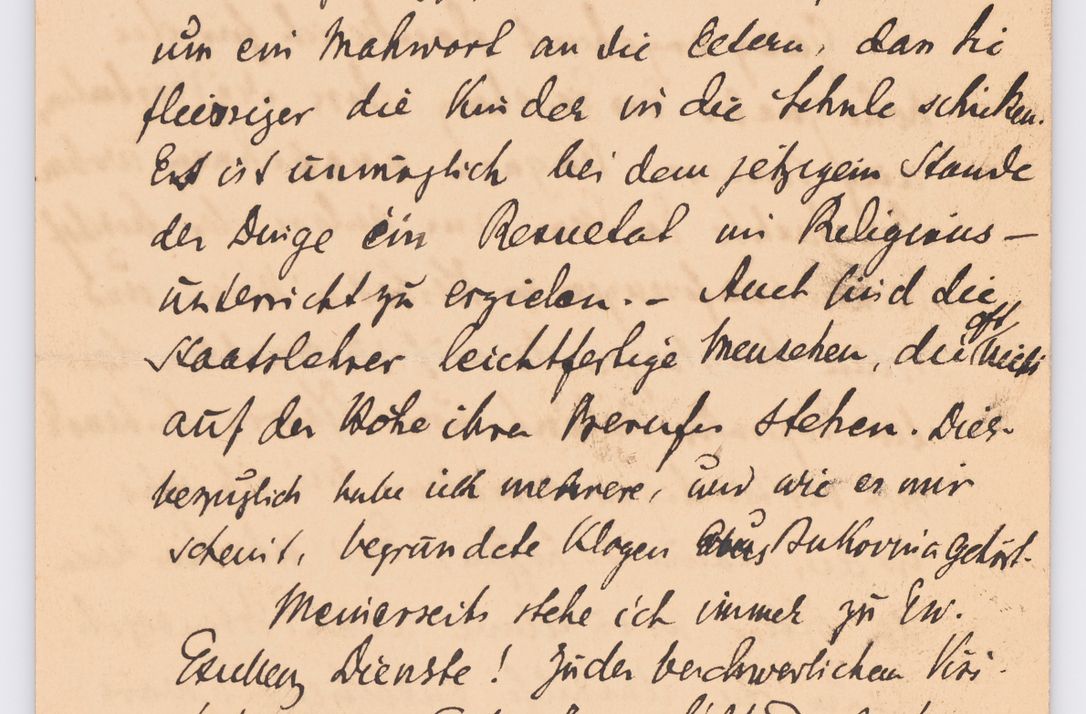 um ein Mahnwort an die Eltern, dass sie
fleissiger die Kinder in die Schule schicken.
Es ist unmöglich bei dem jetzigem Stande
der Dinge ein Resultat im Religions-
unterricht zu erzielen. - Auch sind die
Staatslehrer leichtfertige Menschen, die oft nicht
auf der Höhe ihres Berufes stehen. Dies-
bezüglich habe ich mehrere, und wie es mir
scheint, begründete Klagen aus Bukovina gehört.
Meinerseits stehe ich immer zu Ew.
Exellenz Dienste! Zu der beschwerlichen Visi-